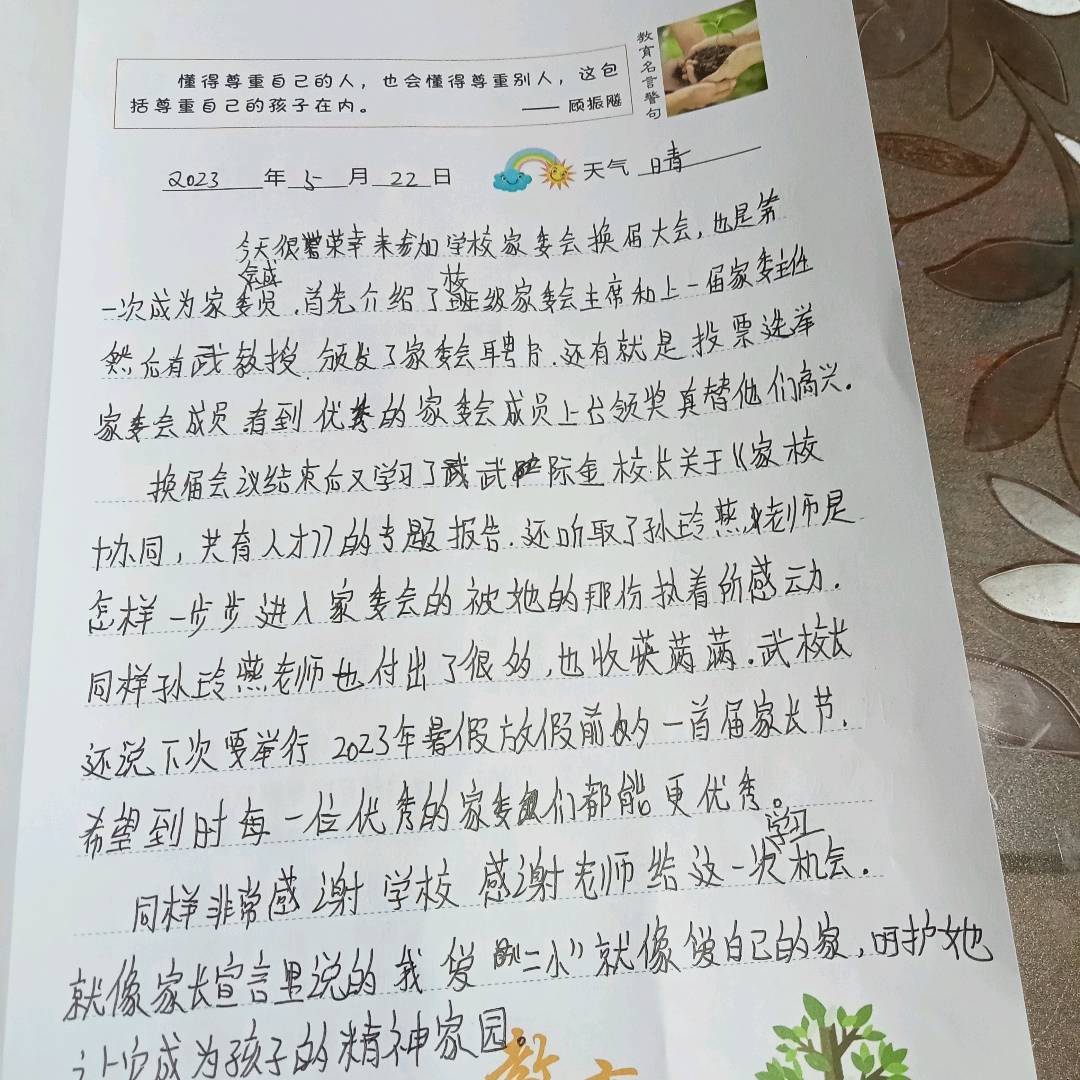 懂得尊重自己的人，也会懂得尊重别人，这包
括尊重自己的孩子在内。 —— 顾振飚
教育名言警句
2023 年 5 月 22 日 天气 晴
今天很荣幸来参加学校家委会换届大会，也是第
一次成为家委会成员，首先介绍了校级家委会主席和上一届家委主任
然后有武教授.颁发了家委会聘书.还有就是投票选举
家委会成员看到优秀的家委会成员上台领奖真替他们高兴.
换届会议结束后又学习了武际金校长关于《家校
协同，共育人才》的专题报告.还听取了孙玲燕老师是
怎样一步步进入家委会的被她的那份执着所感动.
同样孙玲燕老师也付出了很多，也收获满满.武校长
还说下次要举行2023年暑假放假前的一首届家长节，
希望到时每一位优秀的家委们都能更优秀。
同样非常感谢学校感谢老师给这一次学习机会.
就像家长宣言里说的我爱"二小"就像爱自己的家，呵护她
让她成为孩子的精神家园。